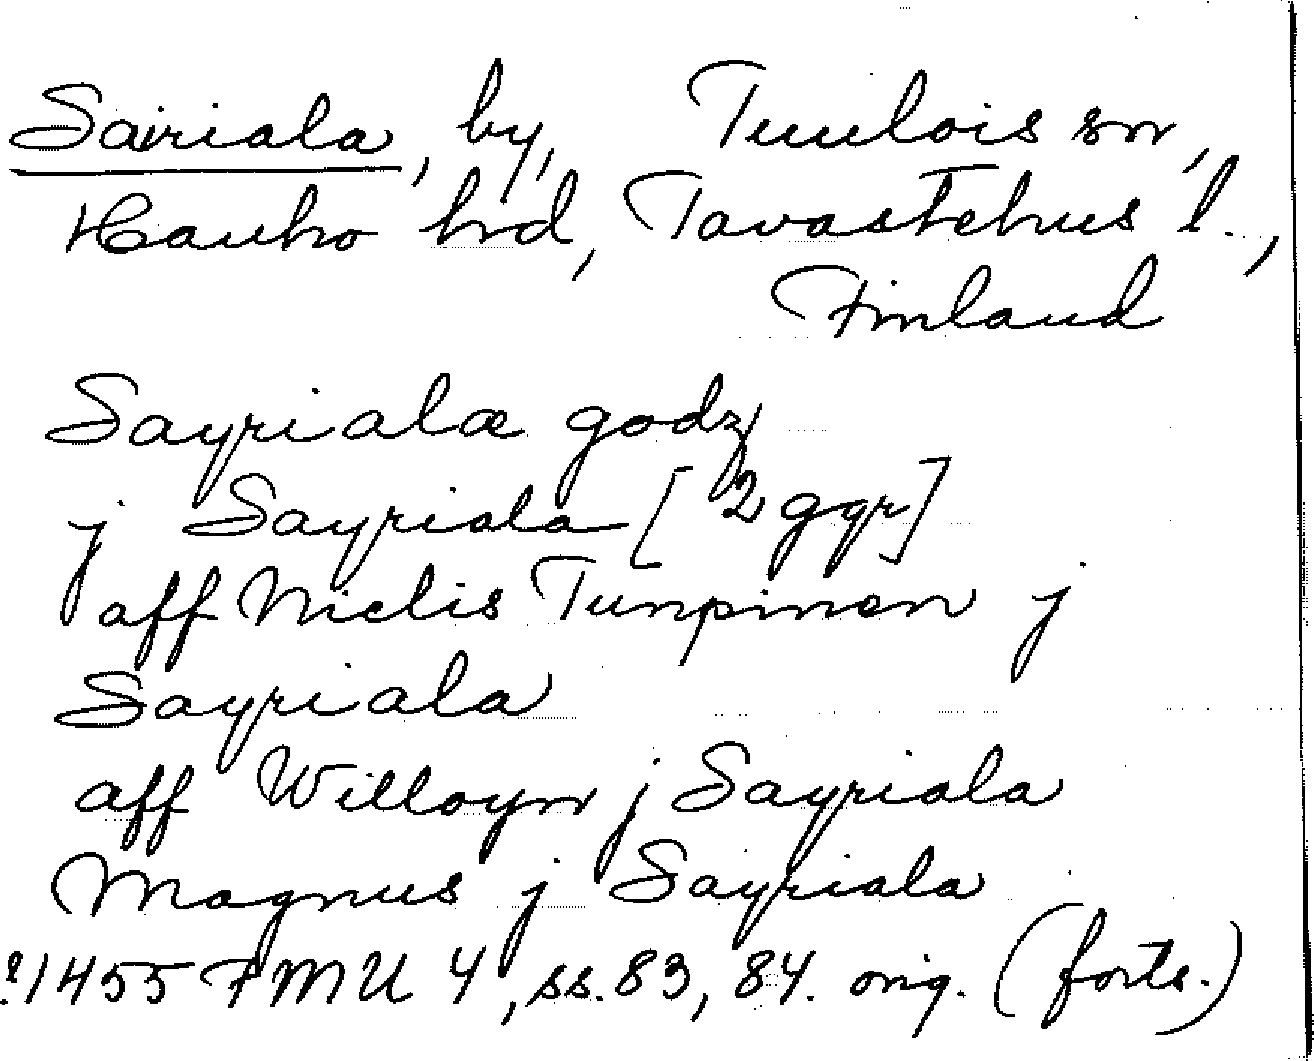 Sairiala, by, Tuulois sn,
Hauho hrd, Tavastehus l.,
Finland
Sayrialæ godz
j Sayriala [2 ggr]
aff Nielis Tunpinen j
Sayriala
aff Willoyn j Sayriala
Magnus j Sayriala
?1455 FMU 4, ss. 83, 84. orig. (forts.)